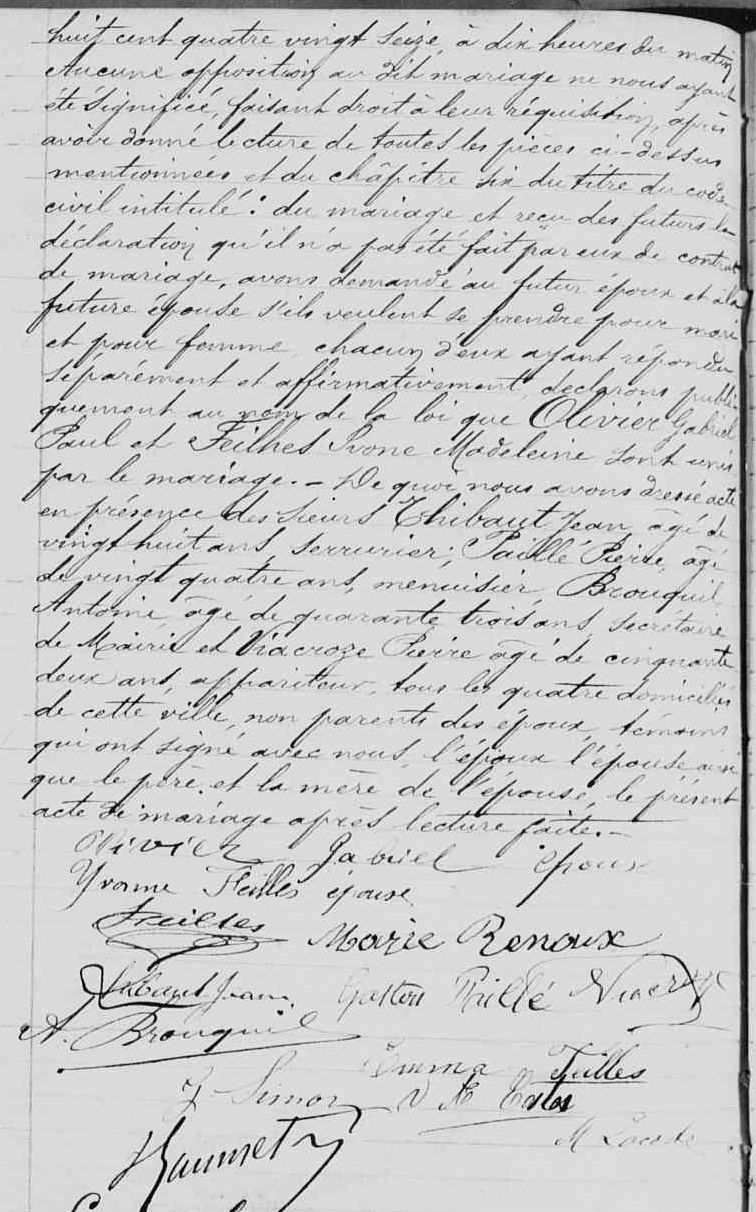 huit cent quatre vingt seize, à dix heures du matin
Aucune opposition au dit mariage ne nous ayant
été signifiée, faisant droit à leur réquisition, après
avoir donné lecture de toutes les pièces ci-dessus
mentionnées et du châpitre six du titre du code
civil intitulé: du mariage et reçu des futurs la
déclaration qu'il n'a pas été fait par eux de contrat
de mariage, avons demandé au futur époux et à la
future épouse s'ils veulent se prendre pour mari
et pour femme, chacun d'eux ayant répondu
séparément et affirmativement, déclarons publi
quement au nom de la loi que Olivier Gabriel
Paul et Feilhes Ivone Madeleine sont unis
par le mariage. - De quoi nous avons dressé acte
en présence des sieurs Thibaut Jean âgé de
vingt huit ans, serrurier; Paillé Pierre, âgé
de vingt quatre ans, menuisier, Brouquil
Antoine, âgé de quarante trois ans, secrétaire
de Mairie et Viacroze Pierre âgé de cinquante
deux ans, appariteur, tous les quatre domiciliés
de cette ville, non parents des époux, témoins
qui ont signé avec nous, l'époux l'épouse ainsi
que le père et la mère de l'épouse, le présent
acte de mariage après lecture faite. -
Olivier Gabriel époux
Yvonne Feilles épouse
Feilles Marie Renoux
Thibaut Jean Gaston Paillé Viacroze
A. Brouquil
Emma Feilles
Simon
M Lacoste